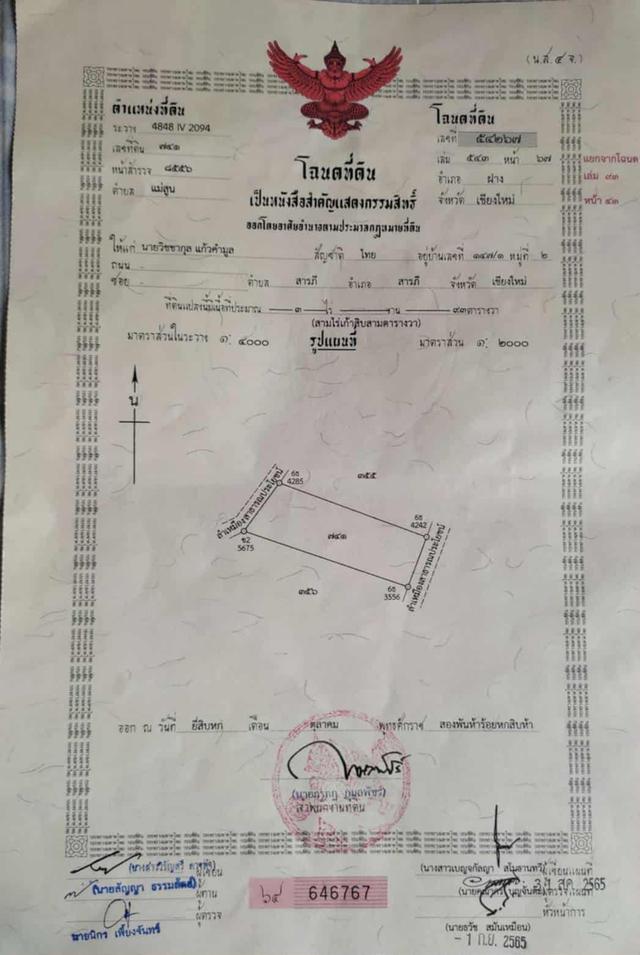 (น.ส.๔ จ.)
ตำแหน่งที่ดิน
ระวาง 4848 IV 2094
เลขที่ดิน ๗๔๑
หน้าสำรวจ ๘๕๕๖
ตำบล แม่สูน
โฉนดที่ดิน
เลขที่ ๕๔๒๖๗
เล่ม ๕๔๓ หน้า ๖๗
อำเภอ ฝาง
จังหวัด เชียงใหม่
แยกจากโฉนด
เล่ม ๙๓
หน้า ๔๓
โฉนดที่ดิน
เป็นหนังสือสำคัญแสดงกรรมสิทธิ์
ออกโดยอาศัยอำนาจตามประมวลกฎหมายที่ดิน
ให้แก่ นายวิชชากุล แก้วคำมูล สัญชาติ ไทย อยู่บ้านเลขที่ ๑๔๗/๑ หมู่ที่ ๒
ถนน -
ซอย - ตำบล สารภี อำเภอ สารภี จังหวัด เชียงใหม่
ที่ดินแปลงนี้มีเนื้อที่ประมาณ ๓ ไร่ - งาน ๙๓ ตารางวา
(สามไร่เก้าสิบสามตารางวา)
มาตราส่วนในระวาง ๑: ๔๐๐๐ รูปแผนที่ มาตราส่วน ๑: ๒๐๐๐
น
๓๕๕
6ธ
4285
ลำเหมืองสาธารณประโยชน์
6ธ
4242
ข2
5675
๗๔๑
ลำเหมืองสาธารณประโยชน์
๓๕๖
6ธ
3556
ออก ณ วันที่ ยี่สิบหก เดือน ตุลาคม พุทธศักราช สองพันห้าร้อยหกสิบห้า
ผู้เขียน
(นายสัญญา ธรรมสัตย์) ผู้ทาน
ผู้ตรวจ
นายนิกร เพี้ยงจันทร์
๖๔ 646767
ผู้เขียนแผนที่
ผู้ตรวจแผนที่
2565
หัวหน้าการ
(นายธวัช สมันเหมือน)
- 1 ก.ย. 2565